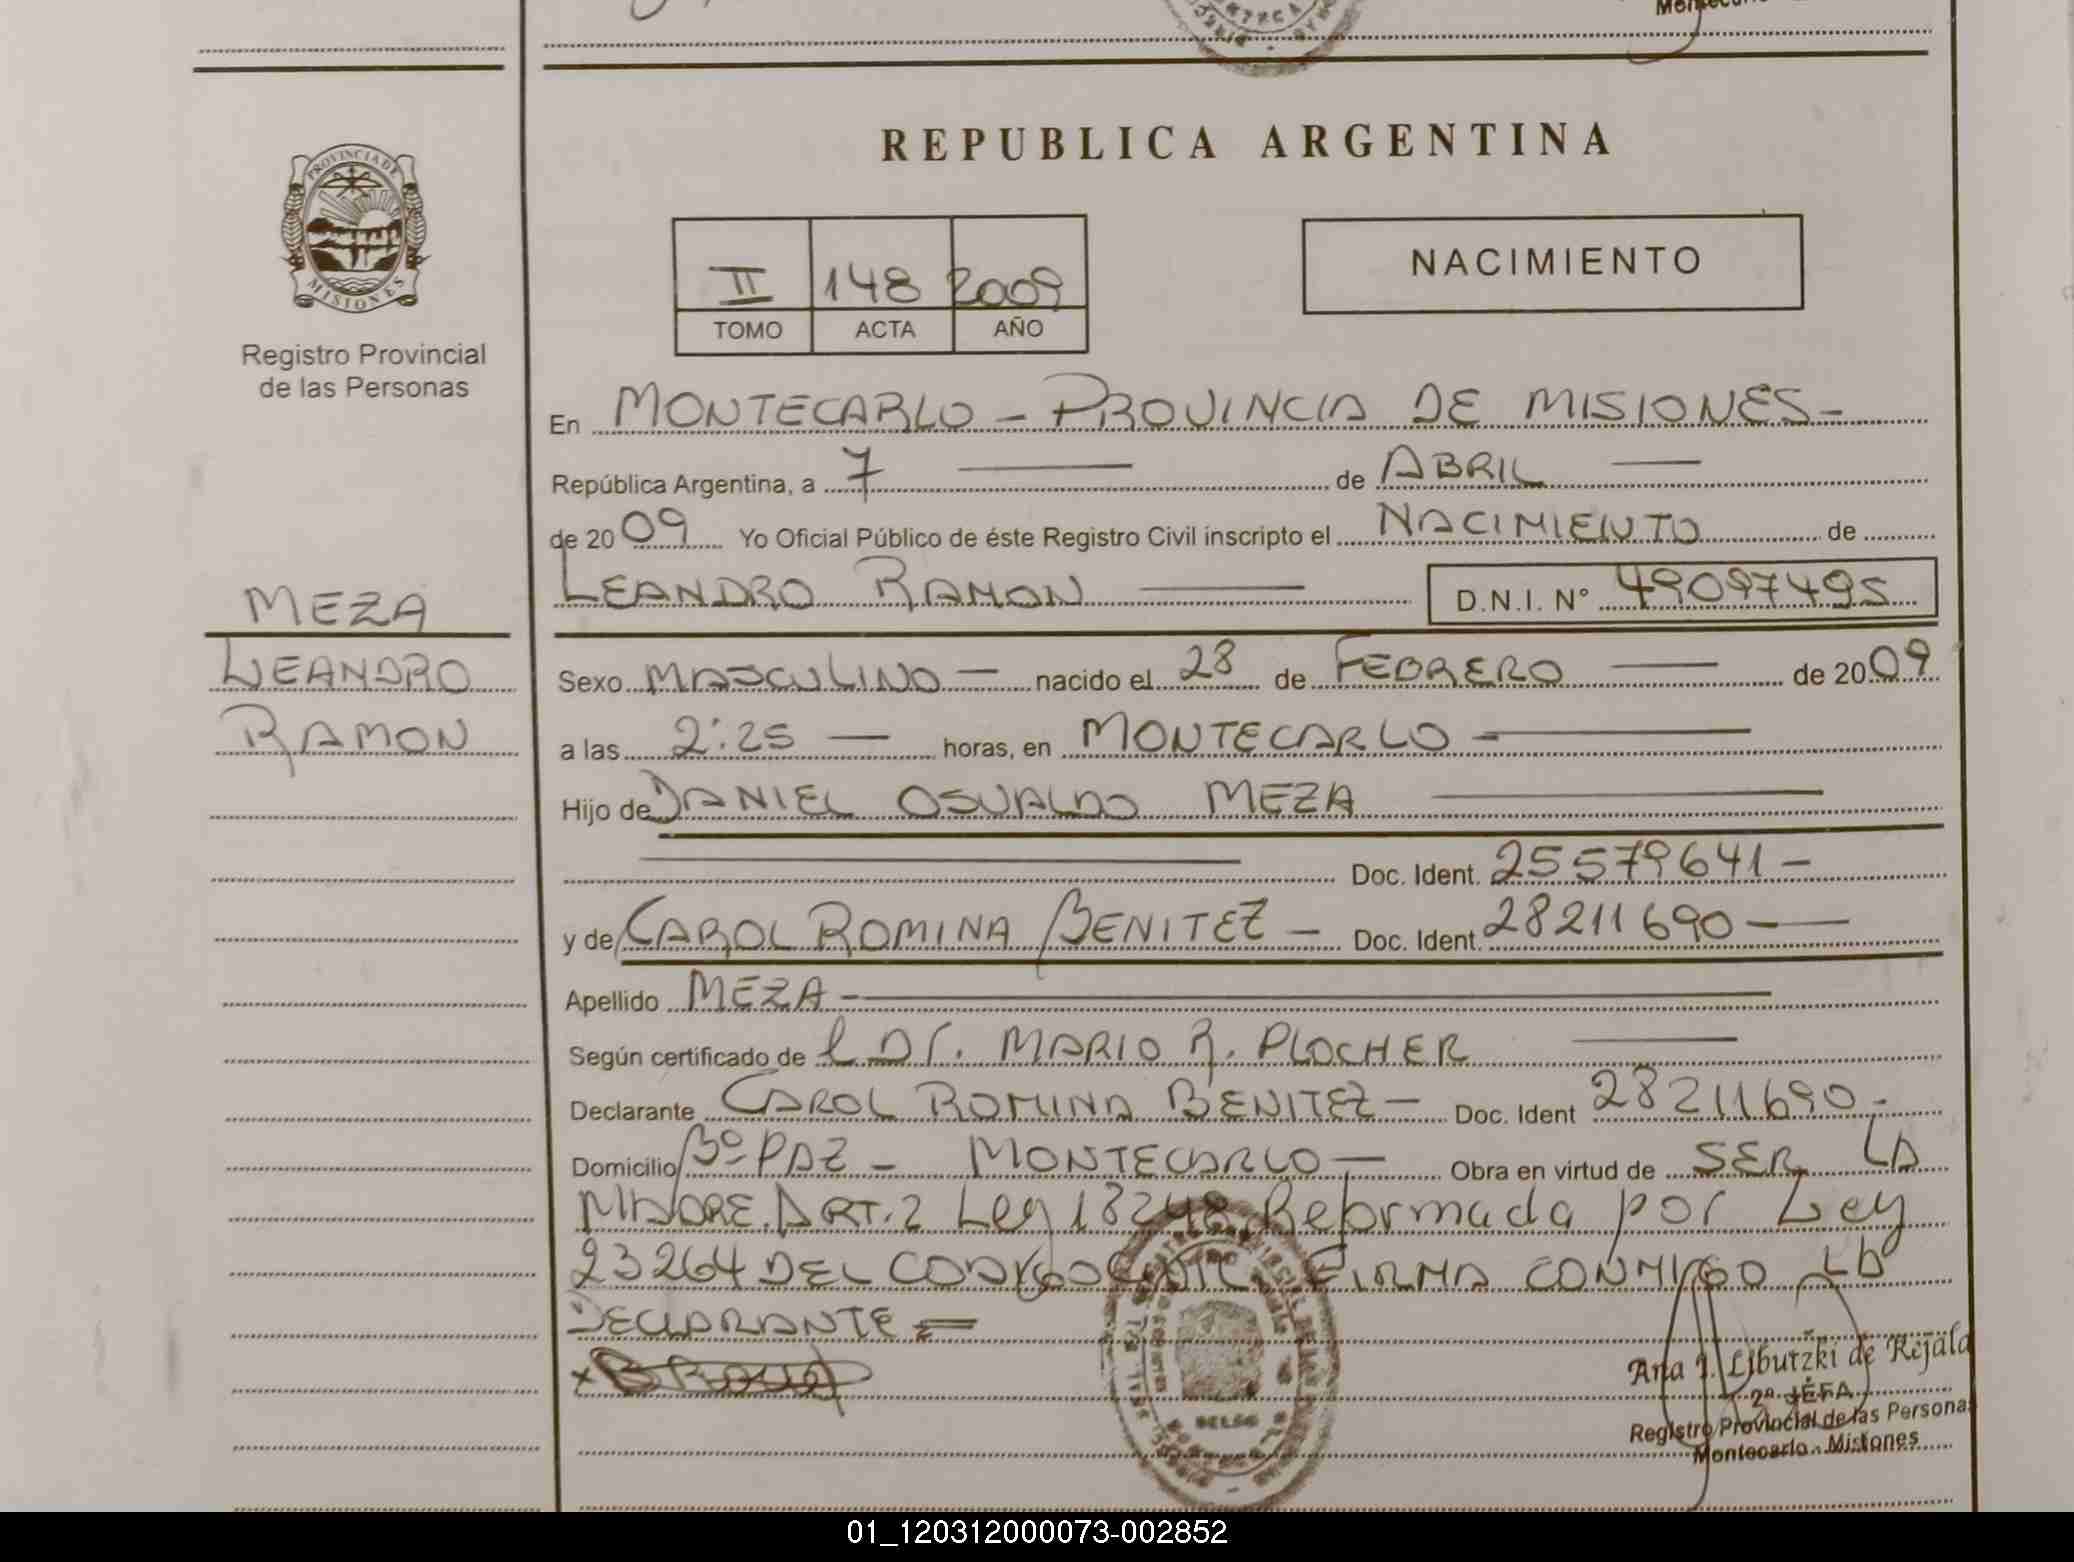 Montecarlo
REPUBLICA ARGENTINA
PROVINCIA DE
MISIONES
Registro Provincial
de las Personas
NACIMIENTO
II 148 2009
TOMO ACTA AÑO
En MONTECARLO - PROVINCIA DE MISIONES -
República Argentina, a 7 — de ABRIL —
de 2009 Yo Oficial Público de éste Registro Civil inscripto el NACIMIENTO de
LEANDRO RAMON — D.N.I. N° 49097495
MEZA
LEANDRO
RAMON
Sexo MASCULINO — nacido el 28 de FEBRERO — de 2009
a las 2:25 — horas, en MONTECARLO —
Hijo de DANIEL OSVALDO MEZA —
— Doc. Ident. 25579641 -
y de CAROL ROMINA BENITEZ — Doc. Ident. 28211690 —
Apellido MEZA —
Según certificado de l Dr. MARIO R. PLOCHER —
Declarante CAROL ROMINA BENITEZ — Doc. Ident 28211690 -
Domicilio Bº PAZ - MONTECARLO — Obra en virtud de SER LA
MADRE. ART. 2 Ley 18248 Reformada por Ley
23264 DEL CODIGO CIVIL. FIRMA CONMIGO LA
DECLARANTE =
Ana J. Libutzki de Rejala
2ª JEFA
Registro Provincial de las Personas
Montecarlo - Misiones
01_120312000073-002852